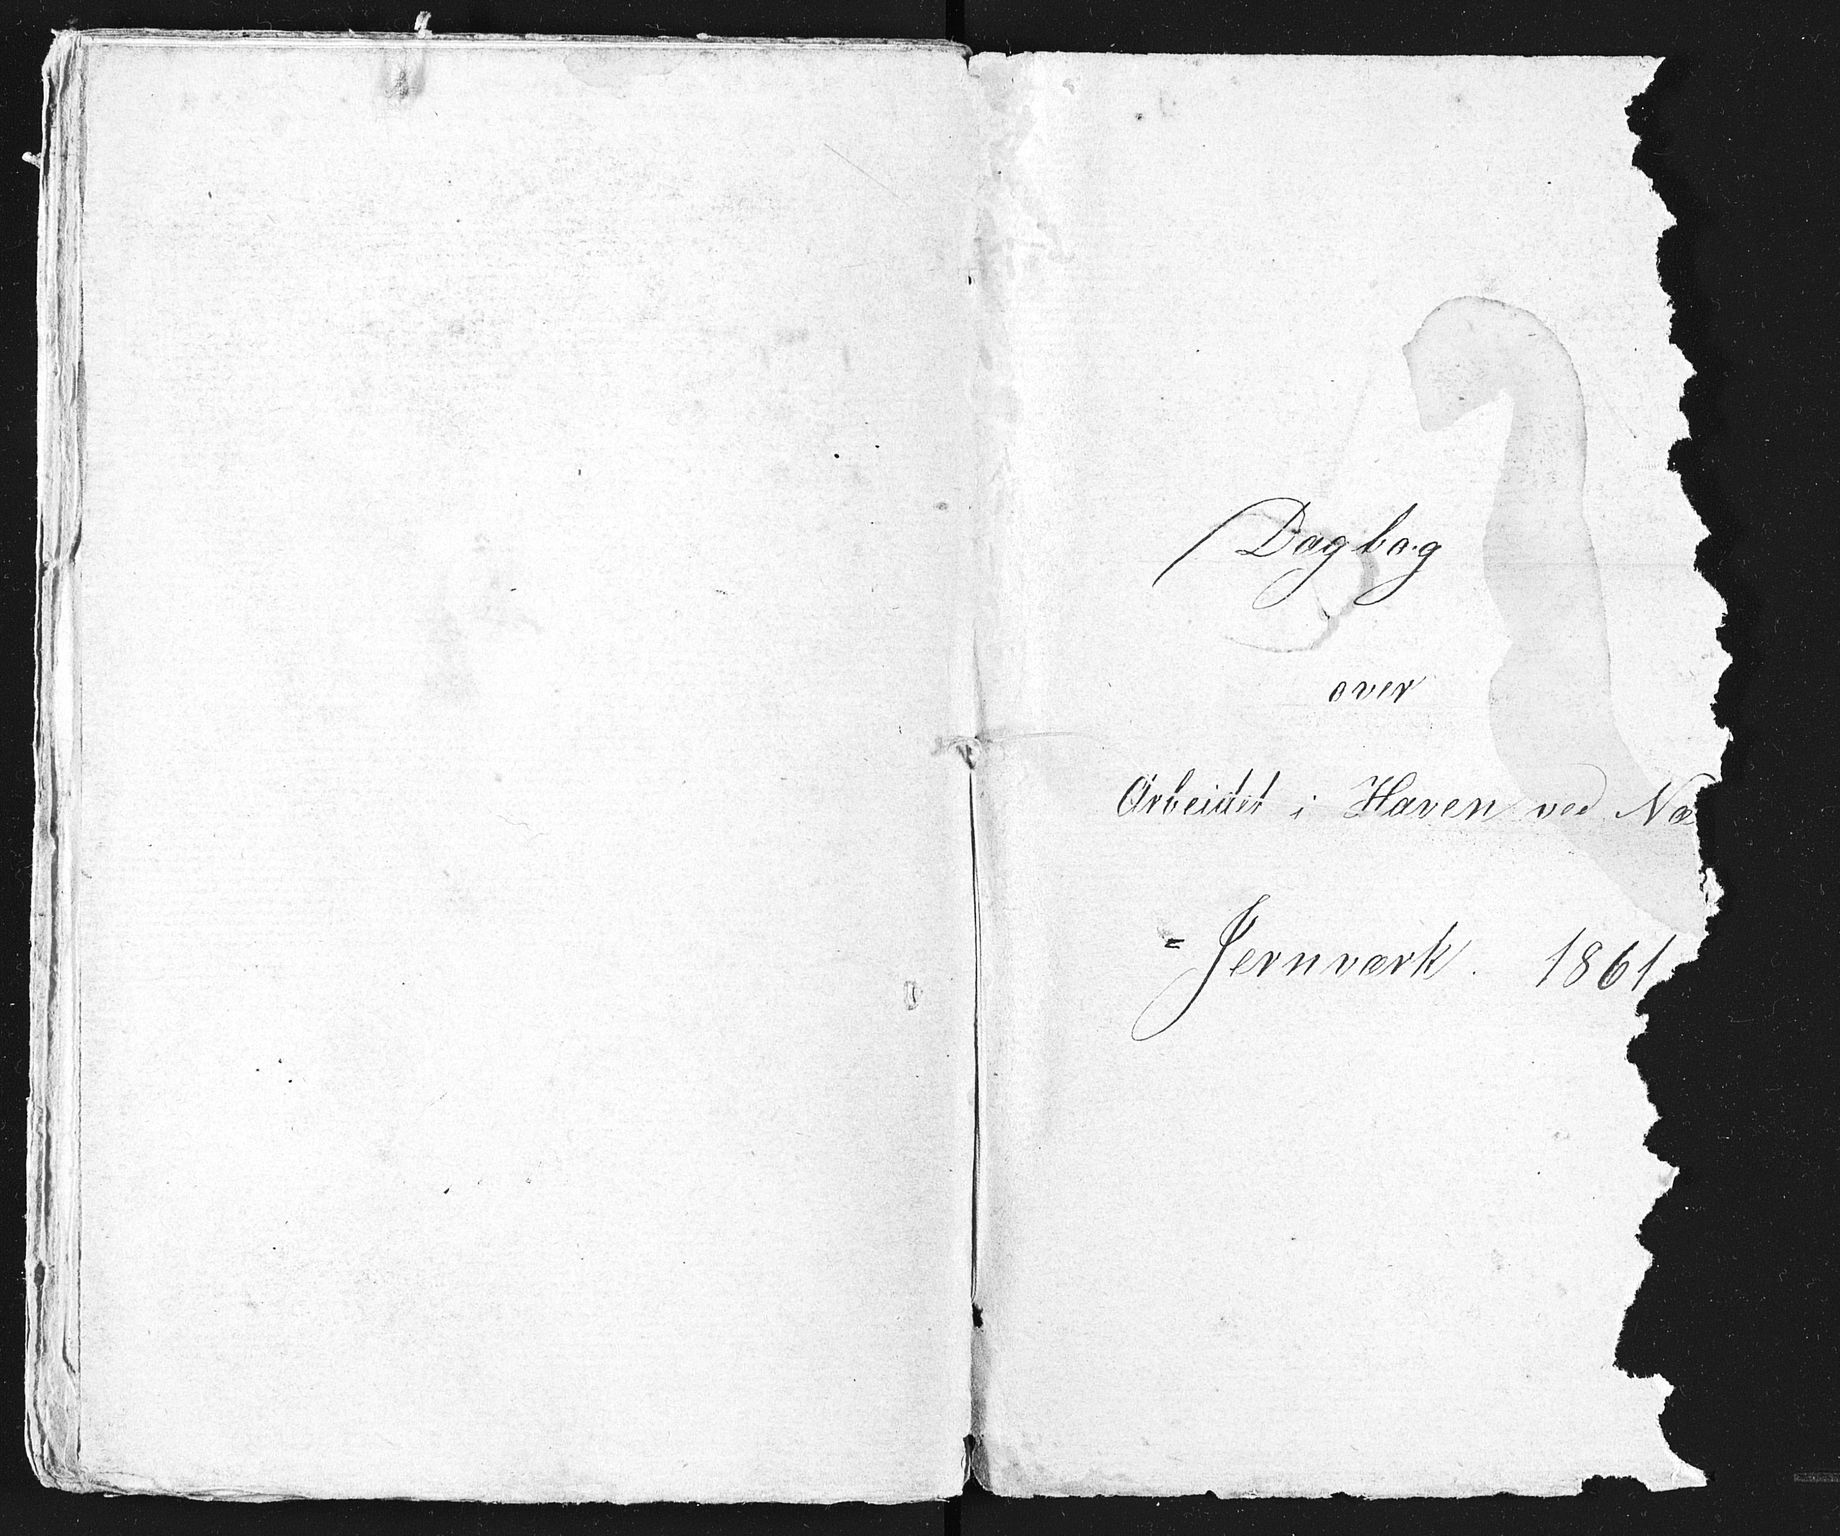 Dagbog
over
Arbeidet i Haven ved Næ
= Jernværk. 1861